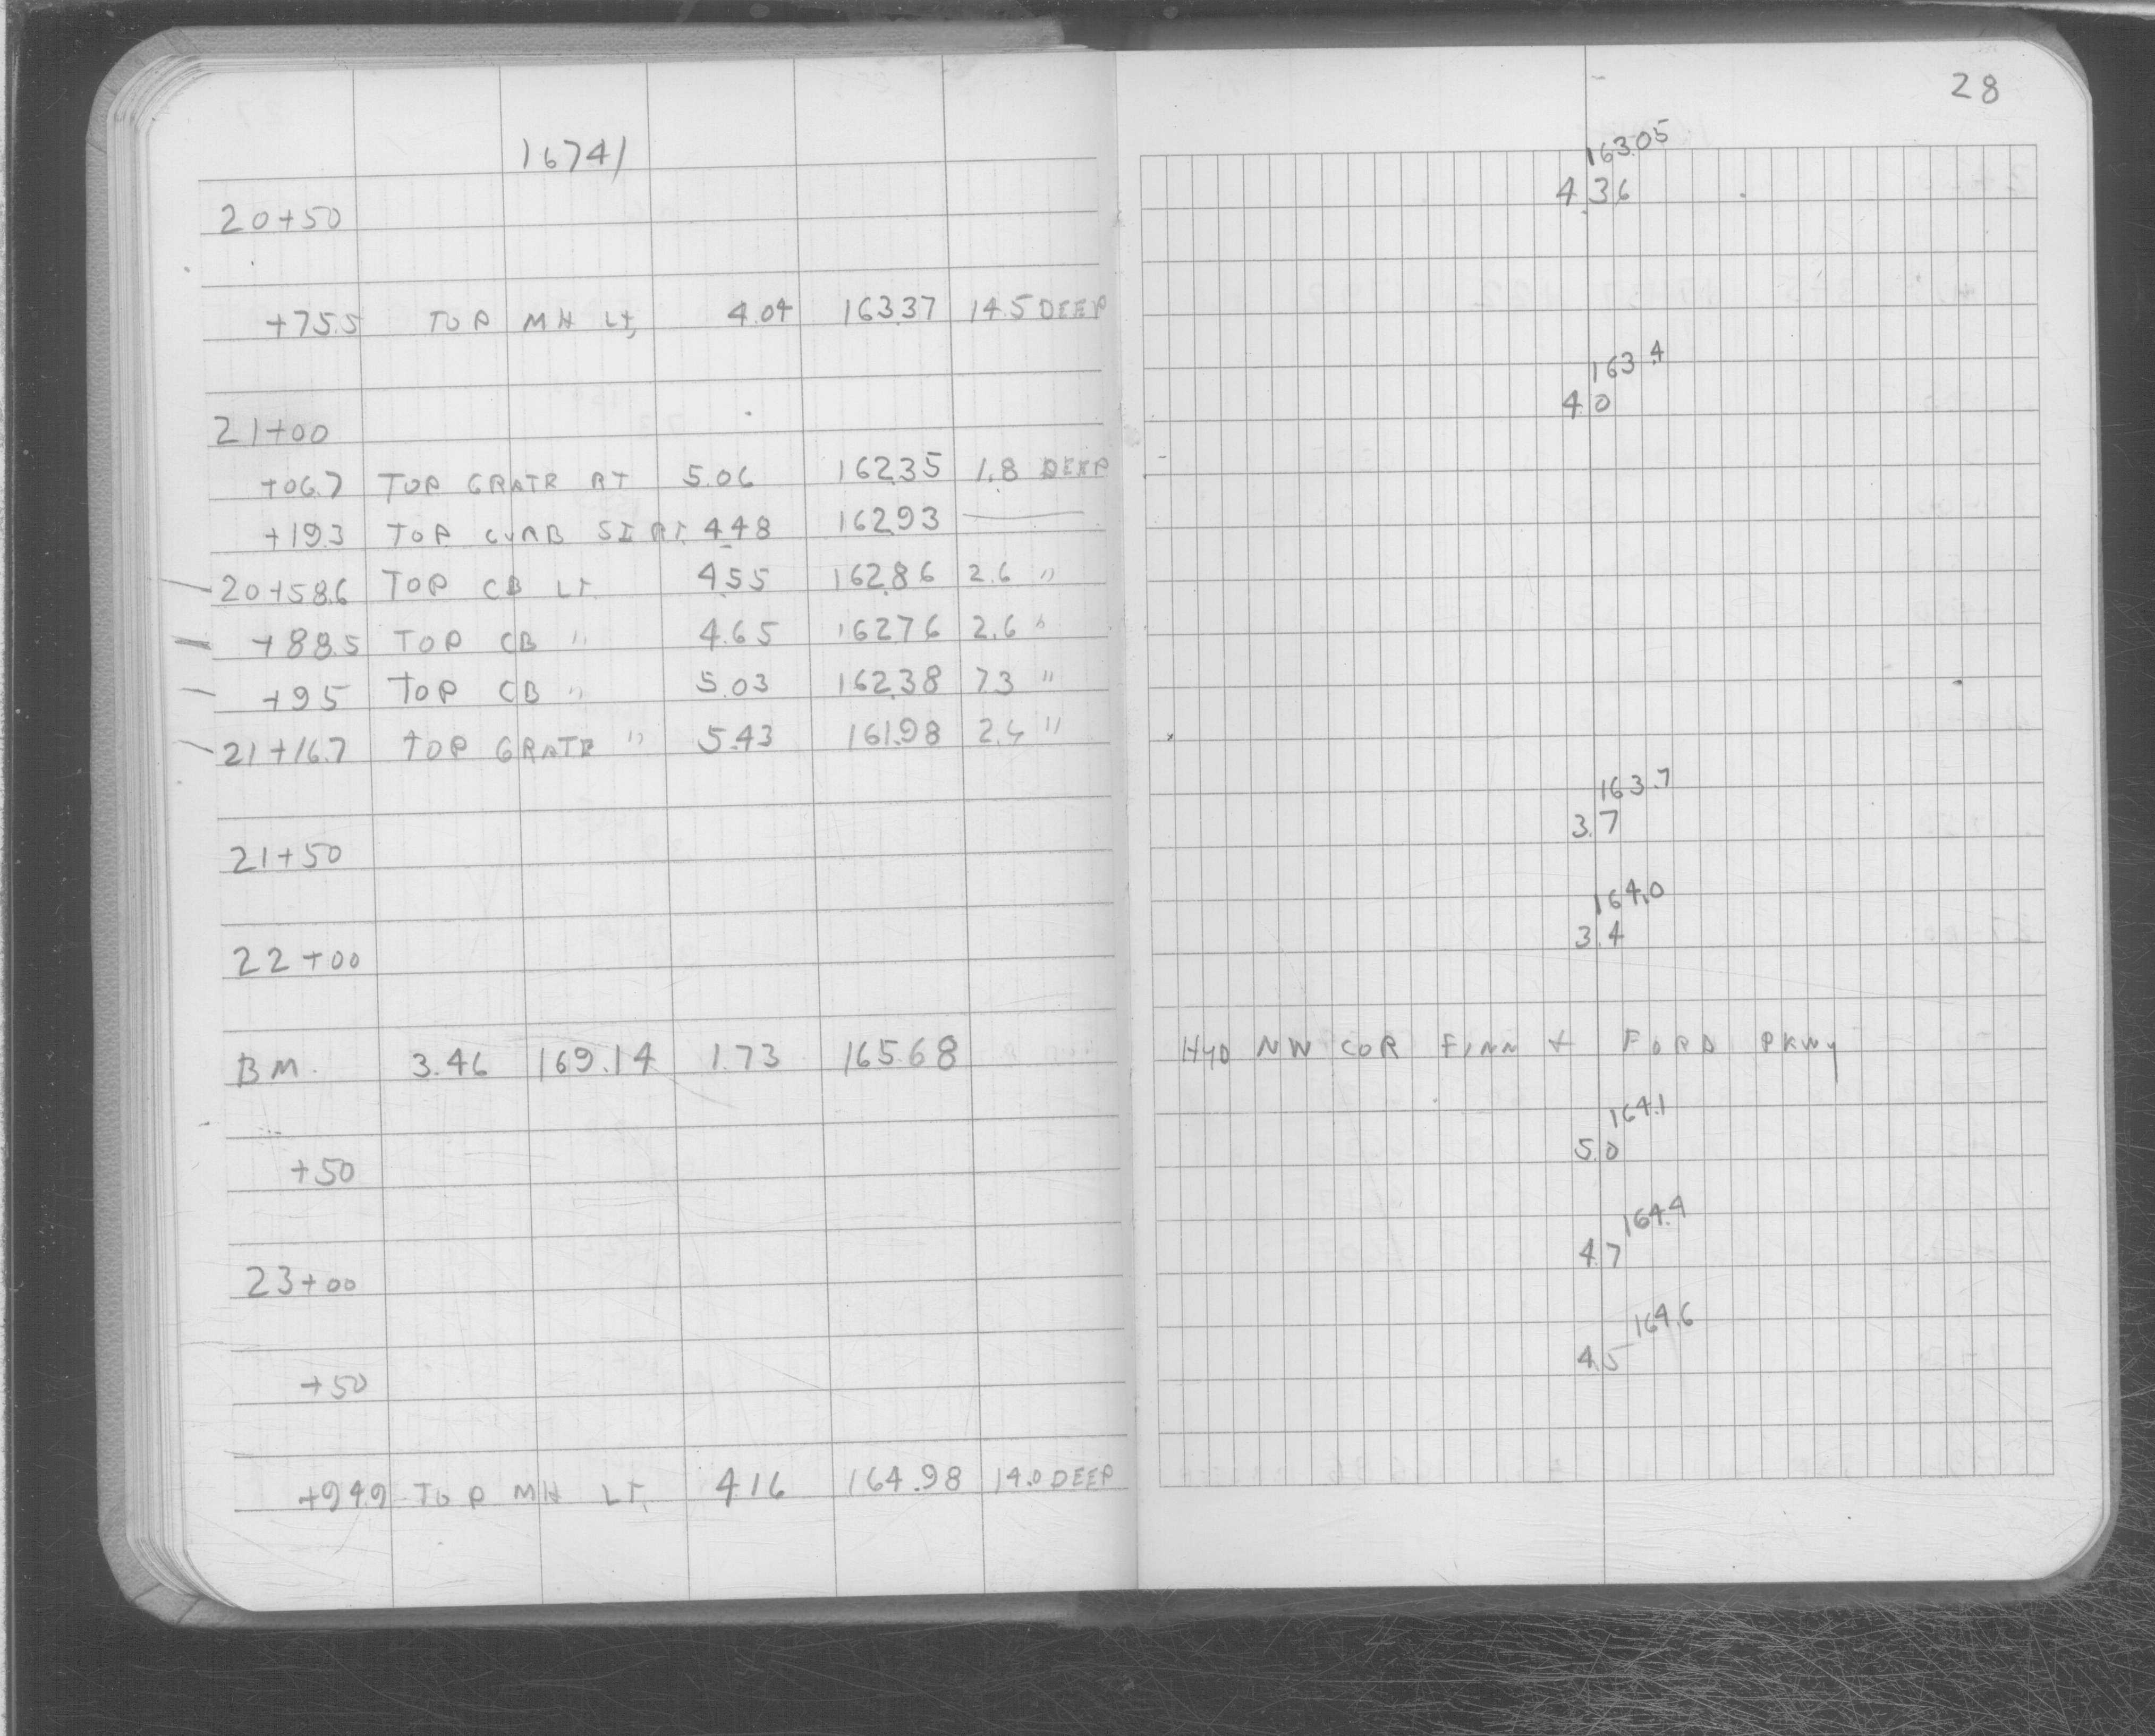 28
16741
163.05
20+50 4.36
+75.5 TOP MH Lt, 4.04 163.37 14.5 DEEP
163.4
21+00 4.0
+06.7 TOP GRATE RT 5.06 162.35 1.8 DEEP
+19.3 TOP CURB SI RT. 4.48 162.93 ——
20+58.6 TOP CB LT. 4.55 162.86 2.6 "
+88.5 TOP CB " 4.65 162.76 2.6 "
+95 TOP CB " 5.03 162.38 7.3 "
21+16.7 TOP GRATE " 5.43 161.98 "
163.7
21+50 3.7
164.0
22+00 3.4
BM. 3.46 169.14 1.73 165.68 HYD NW COR FINN + FORD PKWY
164.1
+50 5.0
164.4
23+00 4.7
164.6
+50 4.5
+94.9 TOP MH LT. 4.16 164.98 14.0 DEEP